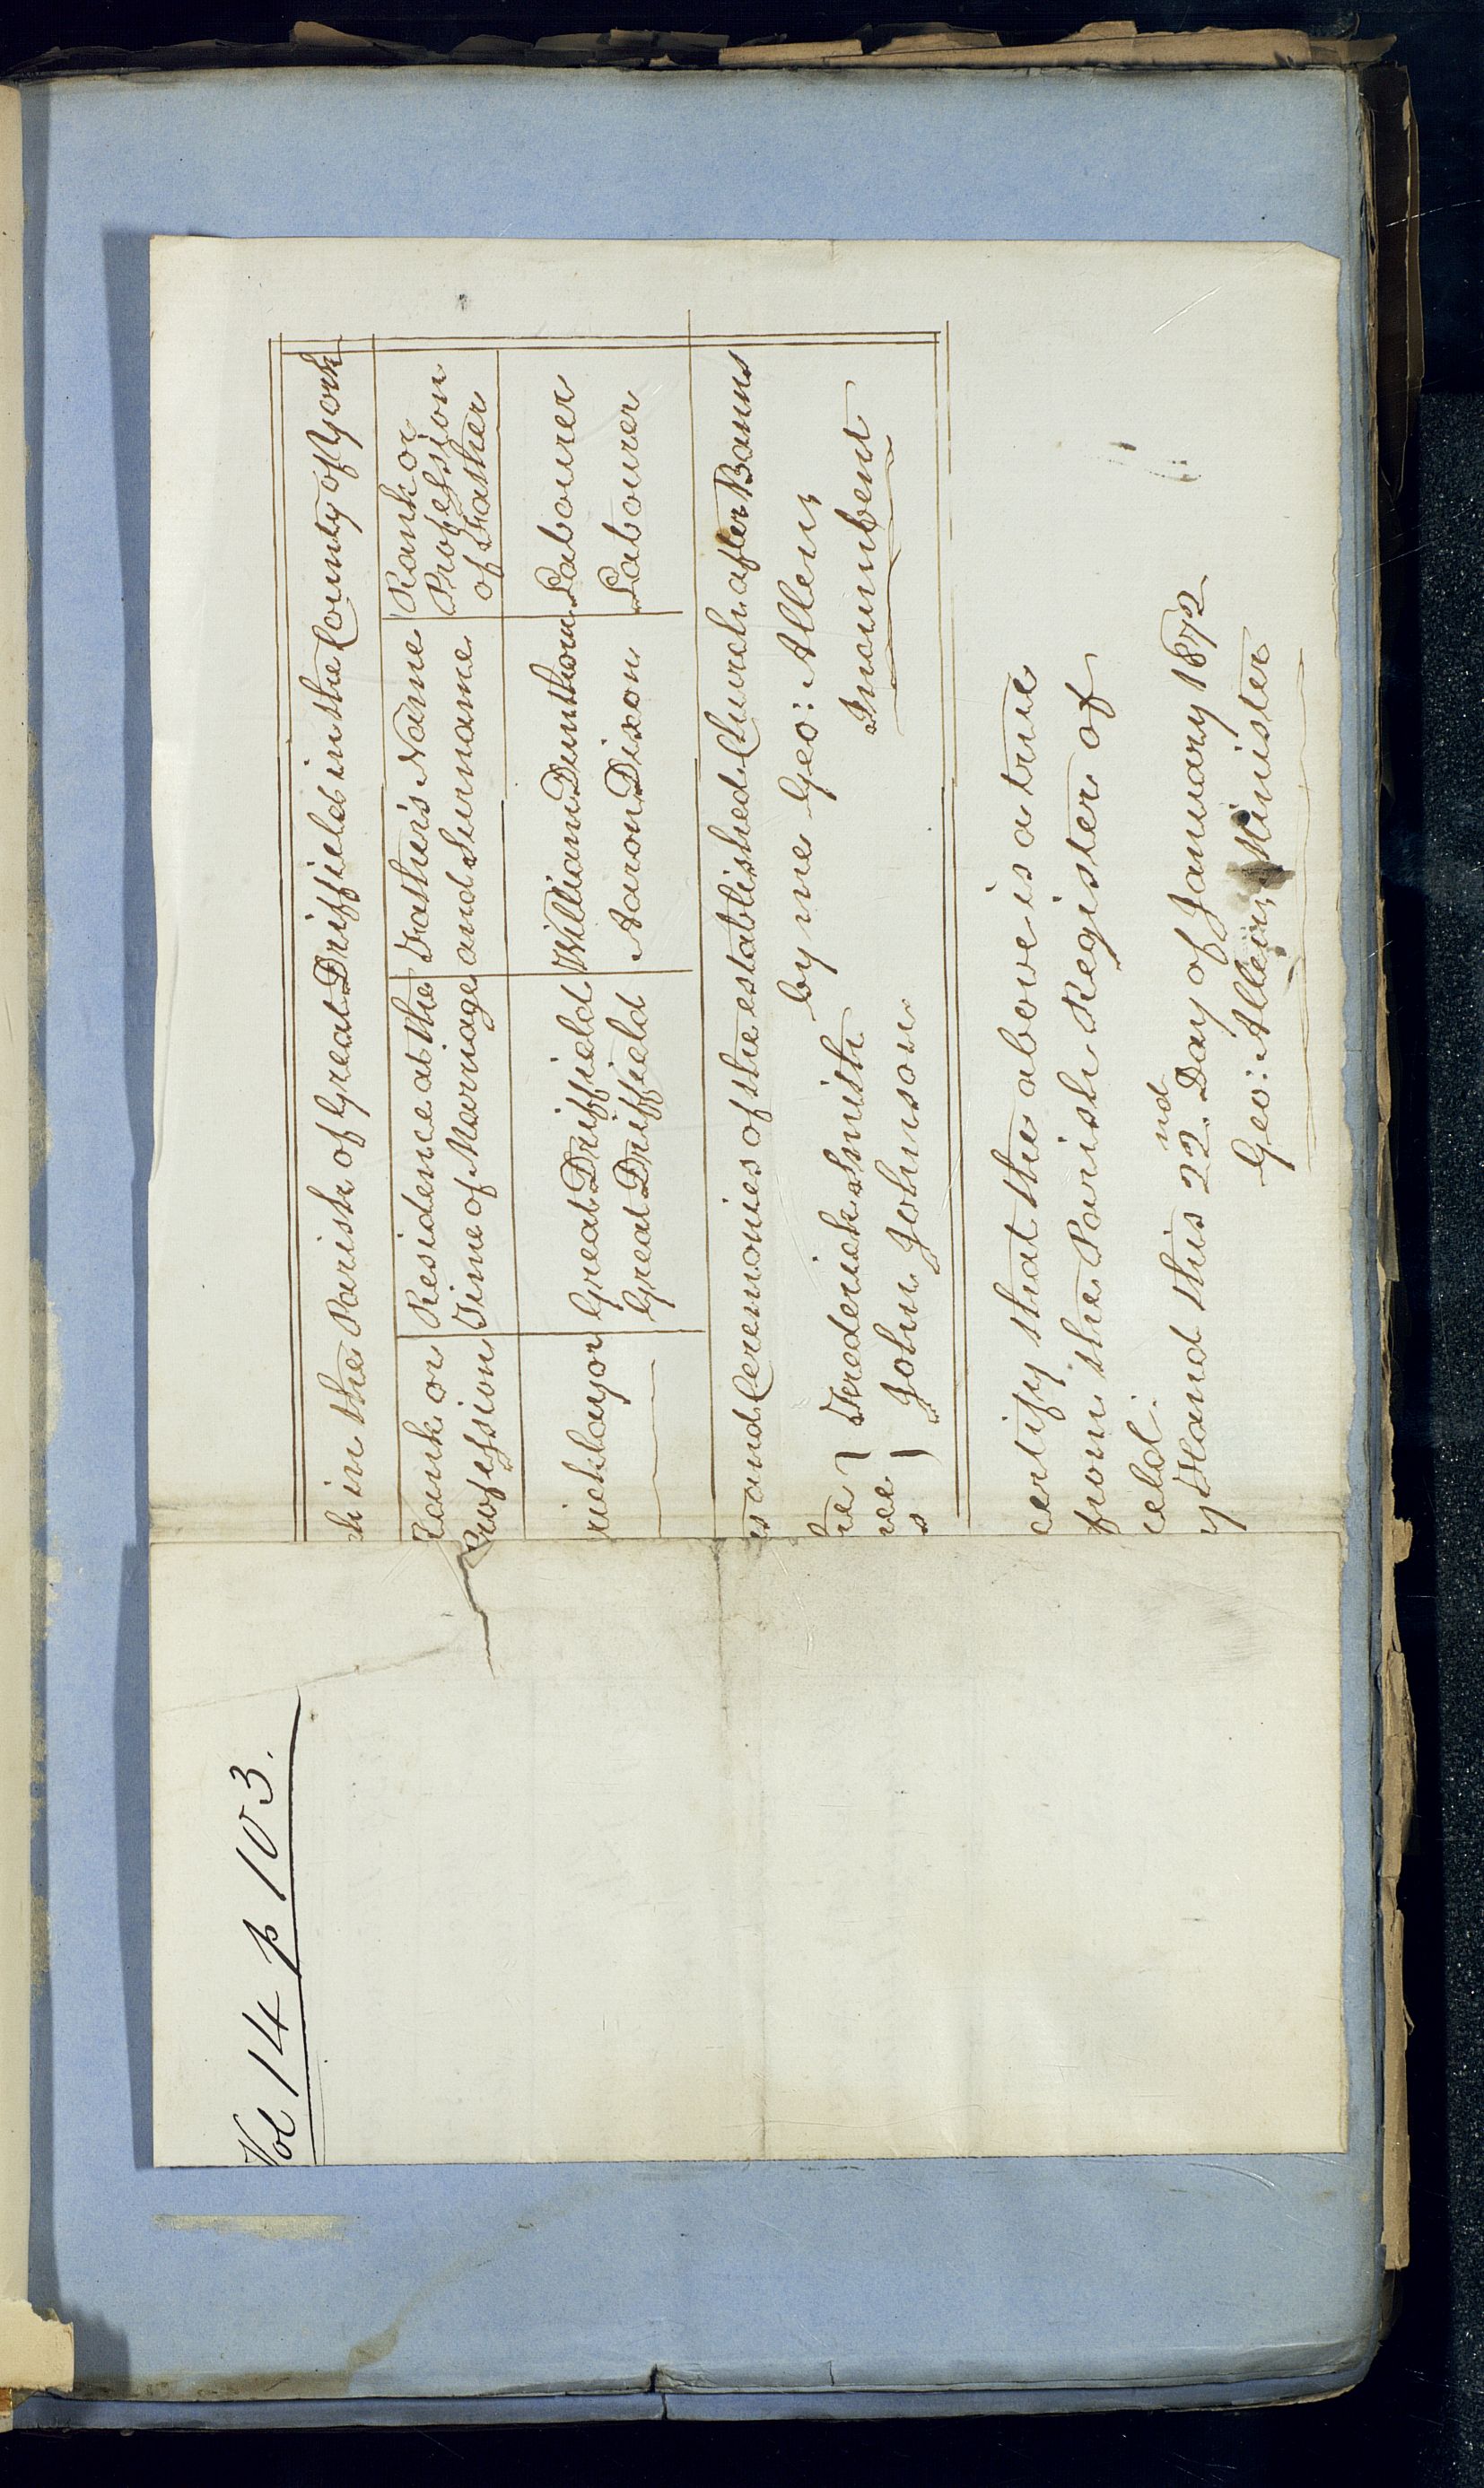 Vol 14 p 103.
ch in the Parish of Great Driffield in the County of York
Rank or Profession | Residence at the Time of Marriage | Father's Name and Surname | Rank or Profession of Father
ricklayor | Great Driffield | William Dunthorn | Labourer
Great Driffield | Aaron Dixon | Labourer
s and Ceremonies of the established Church after Banns
he } Frederick Smith by me Geo: Allen;
ree } John Johnson Incumbent
s
ertify that the above is a true
from the Parish Register of
ield.
y Hand this 22nd Day of January 1872
Geo: Allen; Minister